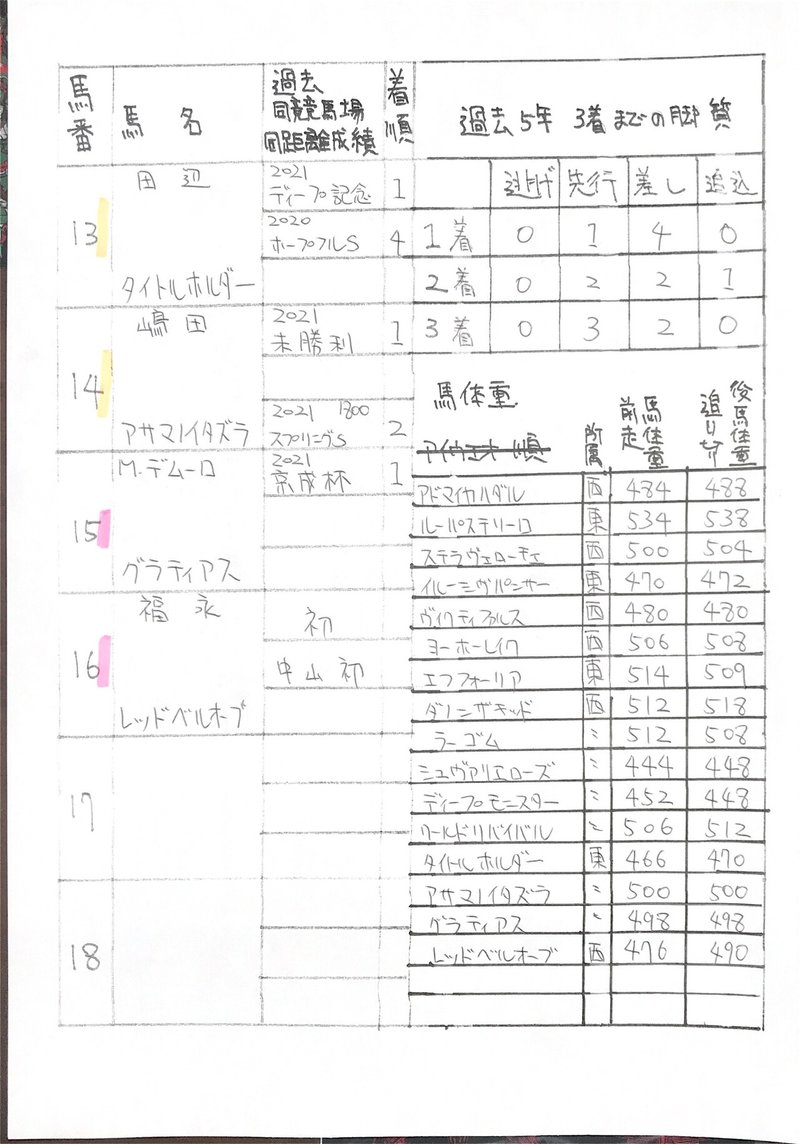 馬番 馬名 過去同競馬場同距離成績 着順
13 田辺 タイトルホルダー
2021 ディープ記念 1
2020 ホープフルS 4
14 嶋田 アサマノイタズラ
2021 未勝利 1
2021 1800 スプリングS 2
15 M.デムーロ グラティアス
2021 京成杯 1
16 福永 レッドベルオーブ
初
中山初
17
18
過去5年 3着までの脚質
逃げ 先行 差し 追込
1着 0 1 4 0
2着 0 2 2 1
3着 0 3 2 0
馬体重
アイウエオ順
所属 前走馬体重 追い切り後馬体重
アドマイヤハダル 西 484 488
ルーパステソーロ 東 534 538
ステラヴェローチェ 西 500 504
イルーシヴパンサー 東 470 472
ヴィクティファルス 西 480 480
ヨーホーレイク 西 506 508
エフフォーリア 東 514 509
ダノンザキッド 西 512 518
ラーゴム 〃 512 508
シュヴァリエローズ 〃 444 448
ディープモンスター 〃 452 448
ワールドリバイバル 〃 506 512
タイトルホルダー 東 466 470
アサマノイタズラ 〃 500 500
グラティアス 〃 498 498
レッドベルオーブ 西 476 490